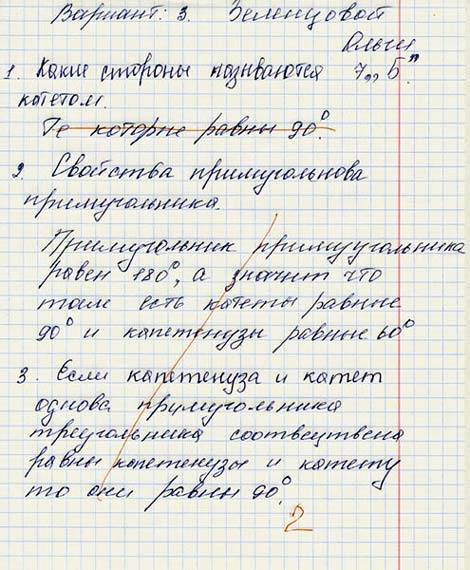 Вариант: 3. Зеленцовой
Ольги
1. Какие стороны называются 7,,Б"
катетом.
Те которые равны 90°.
2. Свойства примугольнова
примугольника.
Примугольник примуугольника
равен 180°, а значит что
там есть катеты равные
90° и капетенузы равные 60°
3. Если капетенуза и катет
однова прумугольника
треугольника соотвеутвена
равны капетенузы и катету
то они равны 90°.
2